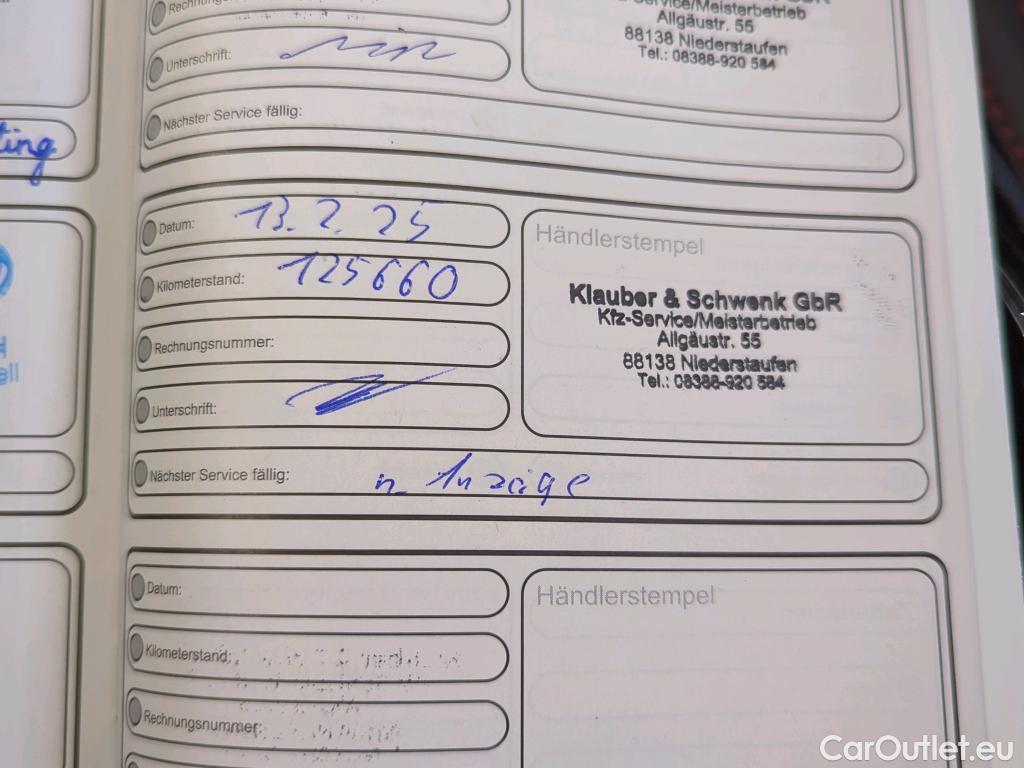 ting
Unterschrift:
Nächster Service fällig:
-Service/Meisterbetrieb
Allgäustr. 55
88138 Niederstaufen
Tel.: 08388-920 584
Datum: 13.2.25
Kilometerstand: 125660
Rechnungsnummer:
Unterschrift:
Nächster Service fällig: n. Anzeige
Händlerstempel
Klauber & Schwenk GbR
Kfz-Service/Meisterbetrieb
Allgäustr. 55
88138 Niederstaufen
Tel.: 08388-920 584
Datum:
Kilometerstand:
Rechnungsnummer:
Händlerstempel
CarOutlet.eu